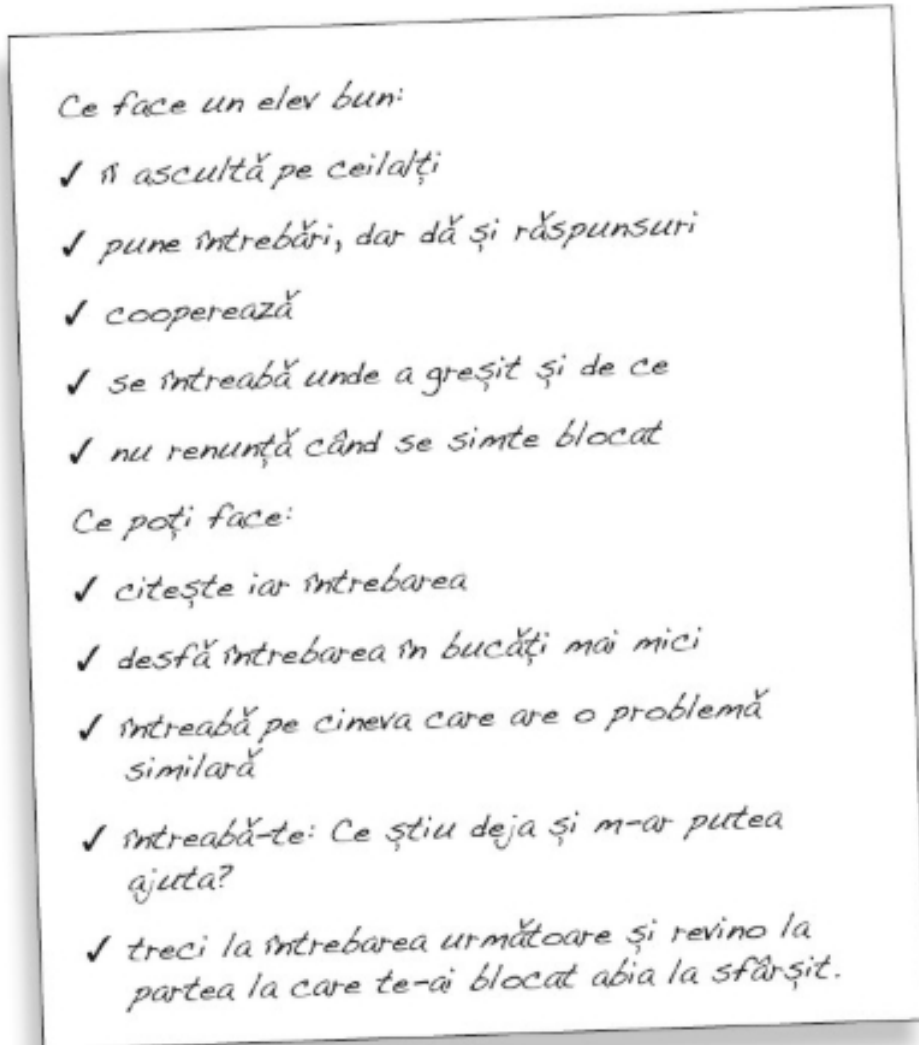 Ce face un elev bun:
✓ îi ascultă pe ceilalți
✓ pune întrebări, dar dă și răspunsuri
✓ cooperează
✓ se întreabă unde a greșit și de ce
✓ nu renunță când se simte blocat
Ce poți face:
✓ citește iar întrebarea
✓ desfă întrebarea în bucăți mai mici
✓ întreabă pe cineva care are o problemă
similară
✓ întreabă-te: Ce știu deja și m-ar putea
ajuta?
✓ treci la întrebarea următoare și revino la
partea la care te-ai blocat abia la sfârșit.